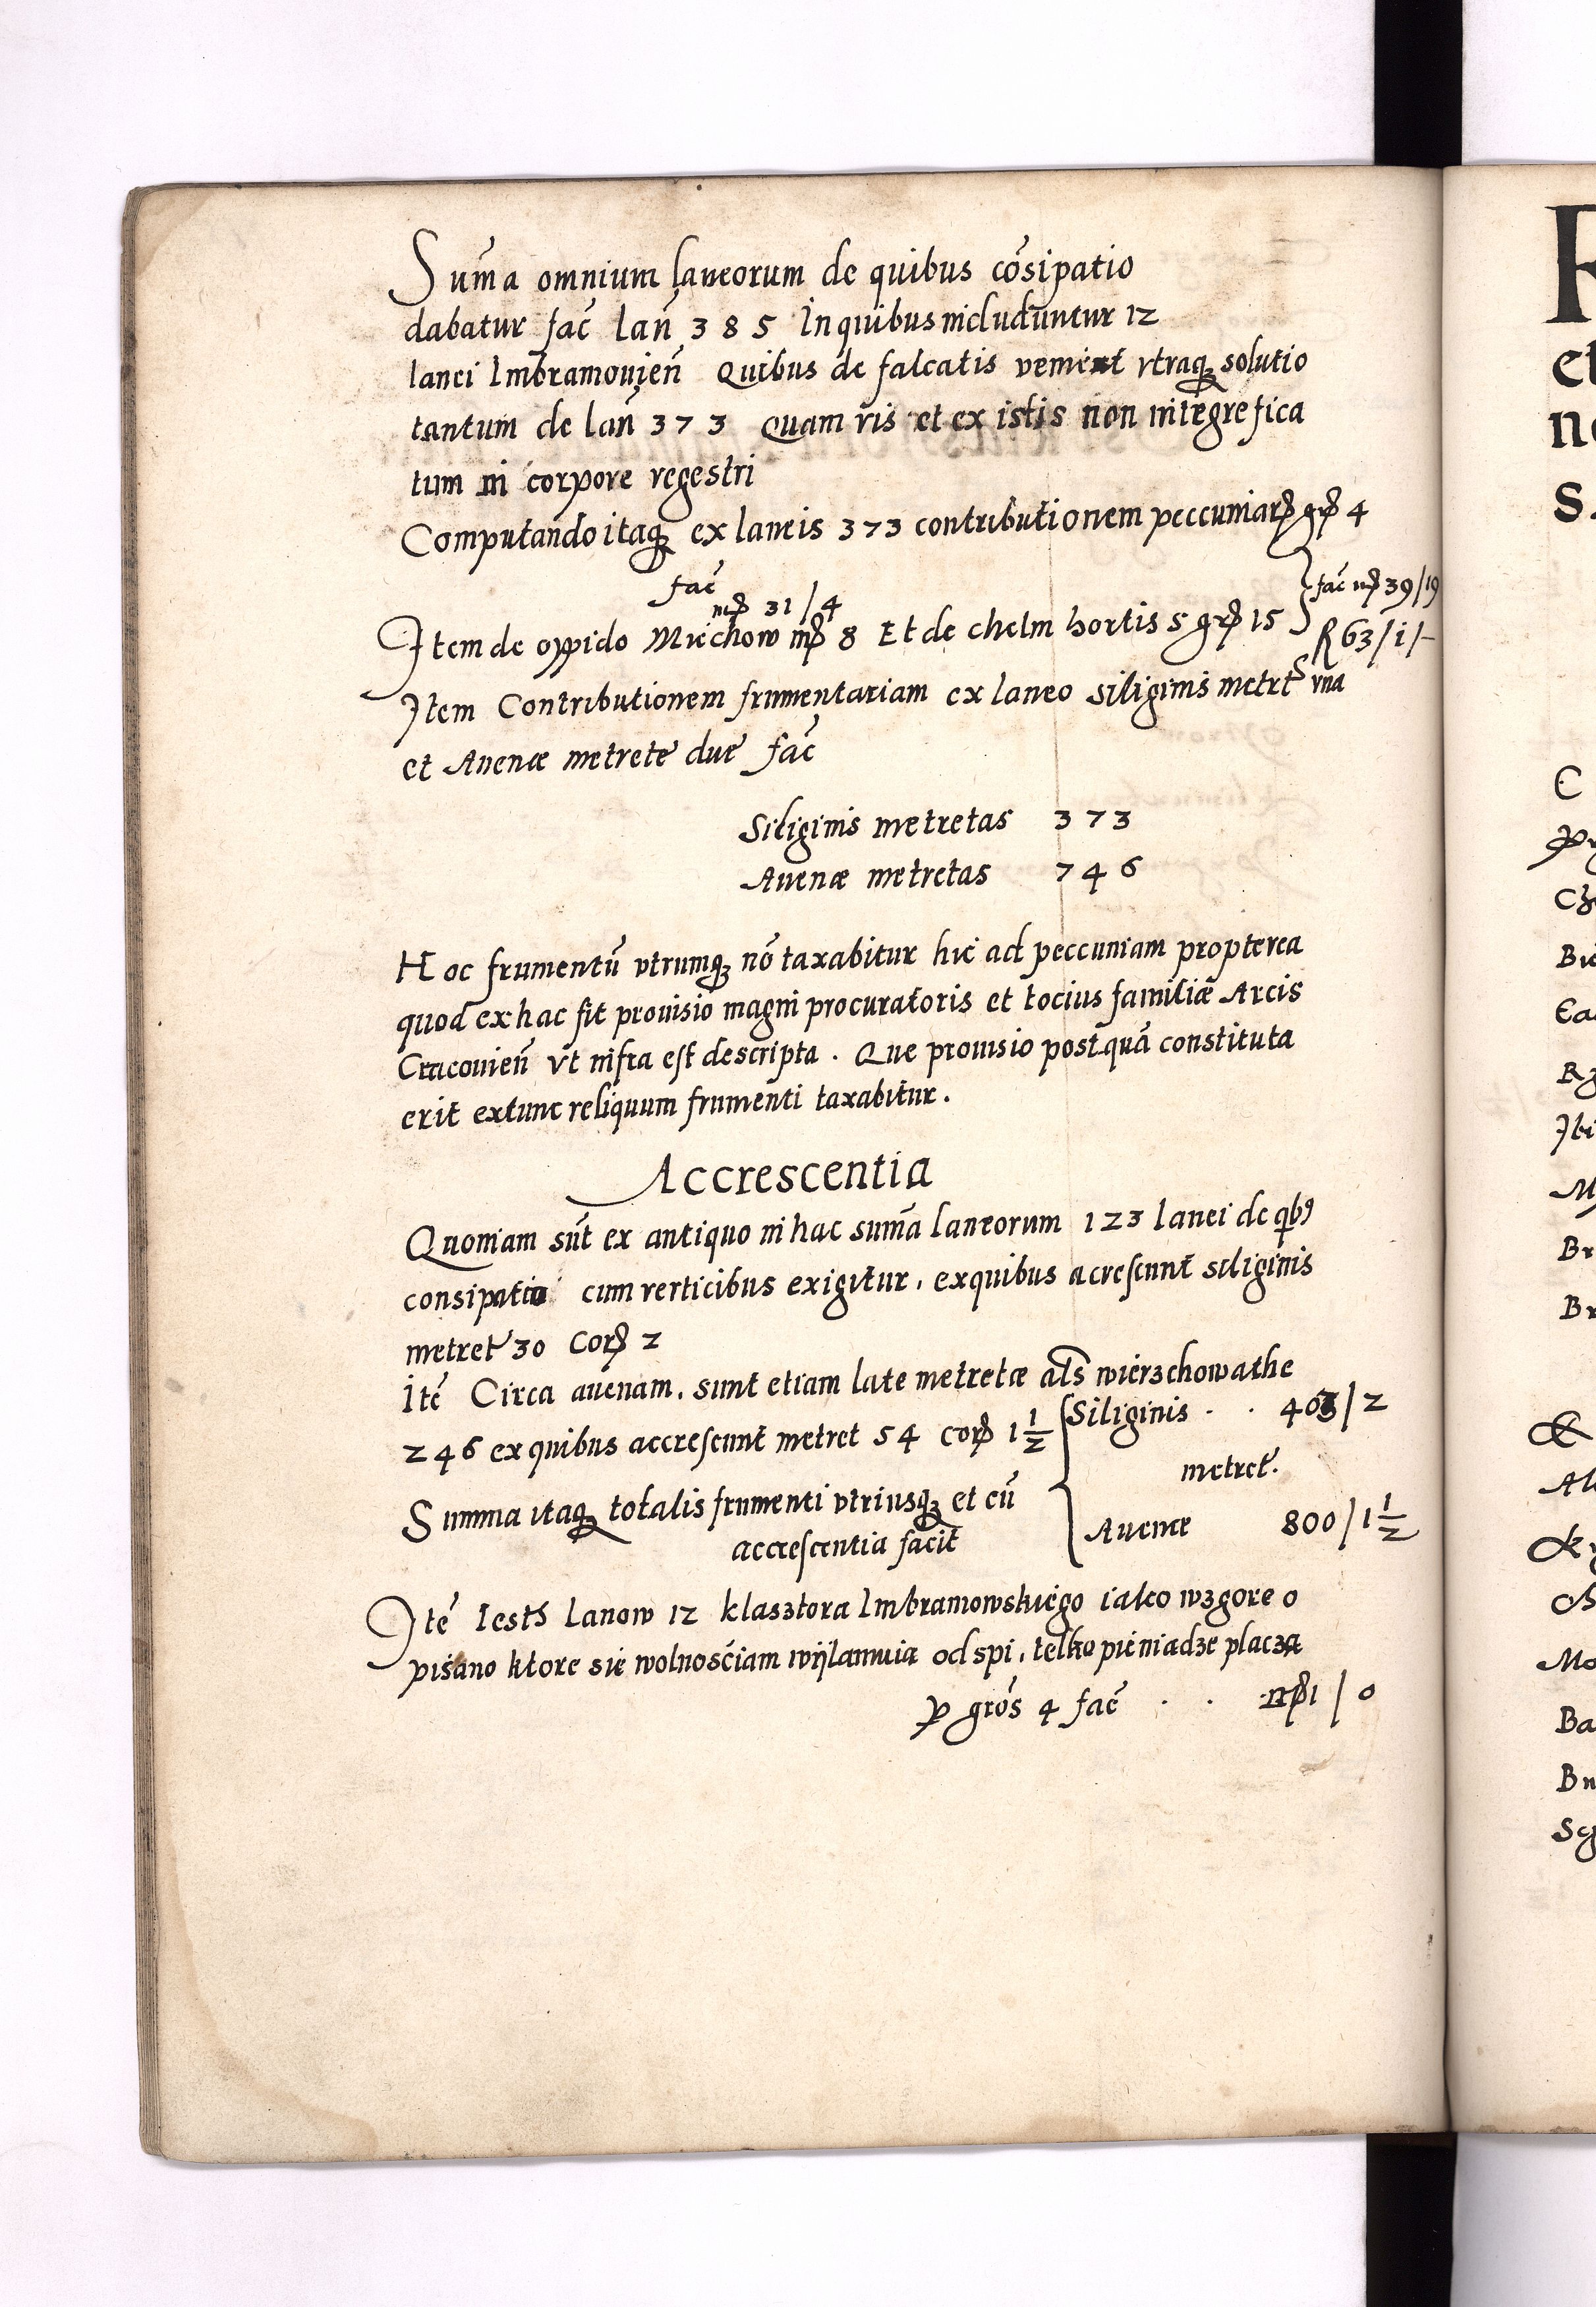 Sum̄a omnium laneorum de quibus cōsipatio
dabatur fac̄ lan̄ 3 8 5 In quibus includuntur 12
lanei Imbramovien̄ Quibus de falcatis veniet vtraq3 solutio
tantum de lan̄ 3 7 3 Quam vis et ex istis non integre fica
tum in corpore regestri
Computando itaq3 ex laneis 3 7 3 contributionem peccuniar̄ gr̄ 4
fac̄
mr̄ 31 / 4
Item de oppido Miechow mr̄ 8 Et de chelm hortis 5 gr̄ 15
fac̄ mr̄ 39/19
R 63/1/-
Item Contributionem frumentariam ex laneo siliginis metret vna
et Auenæ metrete due fac̄
Siliginis metretas 3 7 3
Auenæ metretas 7 4 6
Hoc frumentū vtrumq3 nō taxabitur hic ad peccuniam propterea
quod ex hac fit prouisio magni procuratoris et tocius familiæ Arcis
Cracouien̄ vt infra est descripta . Que prouisio postquā constituta
erit extunc reliquum frumenti taxabitur .
Accrescentia
Quoniam sūt ex antiquo in hac sum̄a laneorum 123 lanei de qb9
consipatio cum verticibus exigitur , ex quibus acrescunt siliginis
metret 30 Cor̄ 2
Itē Circa auenam , sunt etiam late metretæ al̄s wierzchowathe
2 4 6 ex quibus accrescunt metret 54 Cor̄ 1 1/2
Siliginis . . 403/2
metret .
Summa itaq3 totalis frumenti vtriusq3 et cū
accrescentia facit
Auenæ 800/1 1/2
Itē Iesth lanow 12 klasztora Imbramowskiego iako wzgore o
pisano ktore sie wolnosciam wÿlamuia od spi , telko pieniadze placza
P grōs 4 fac̄ . . mr̄ 1 / 0